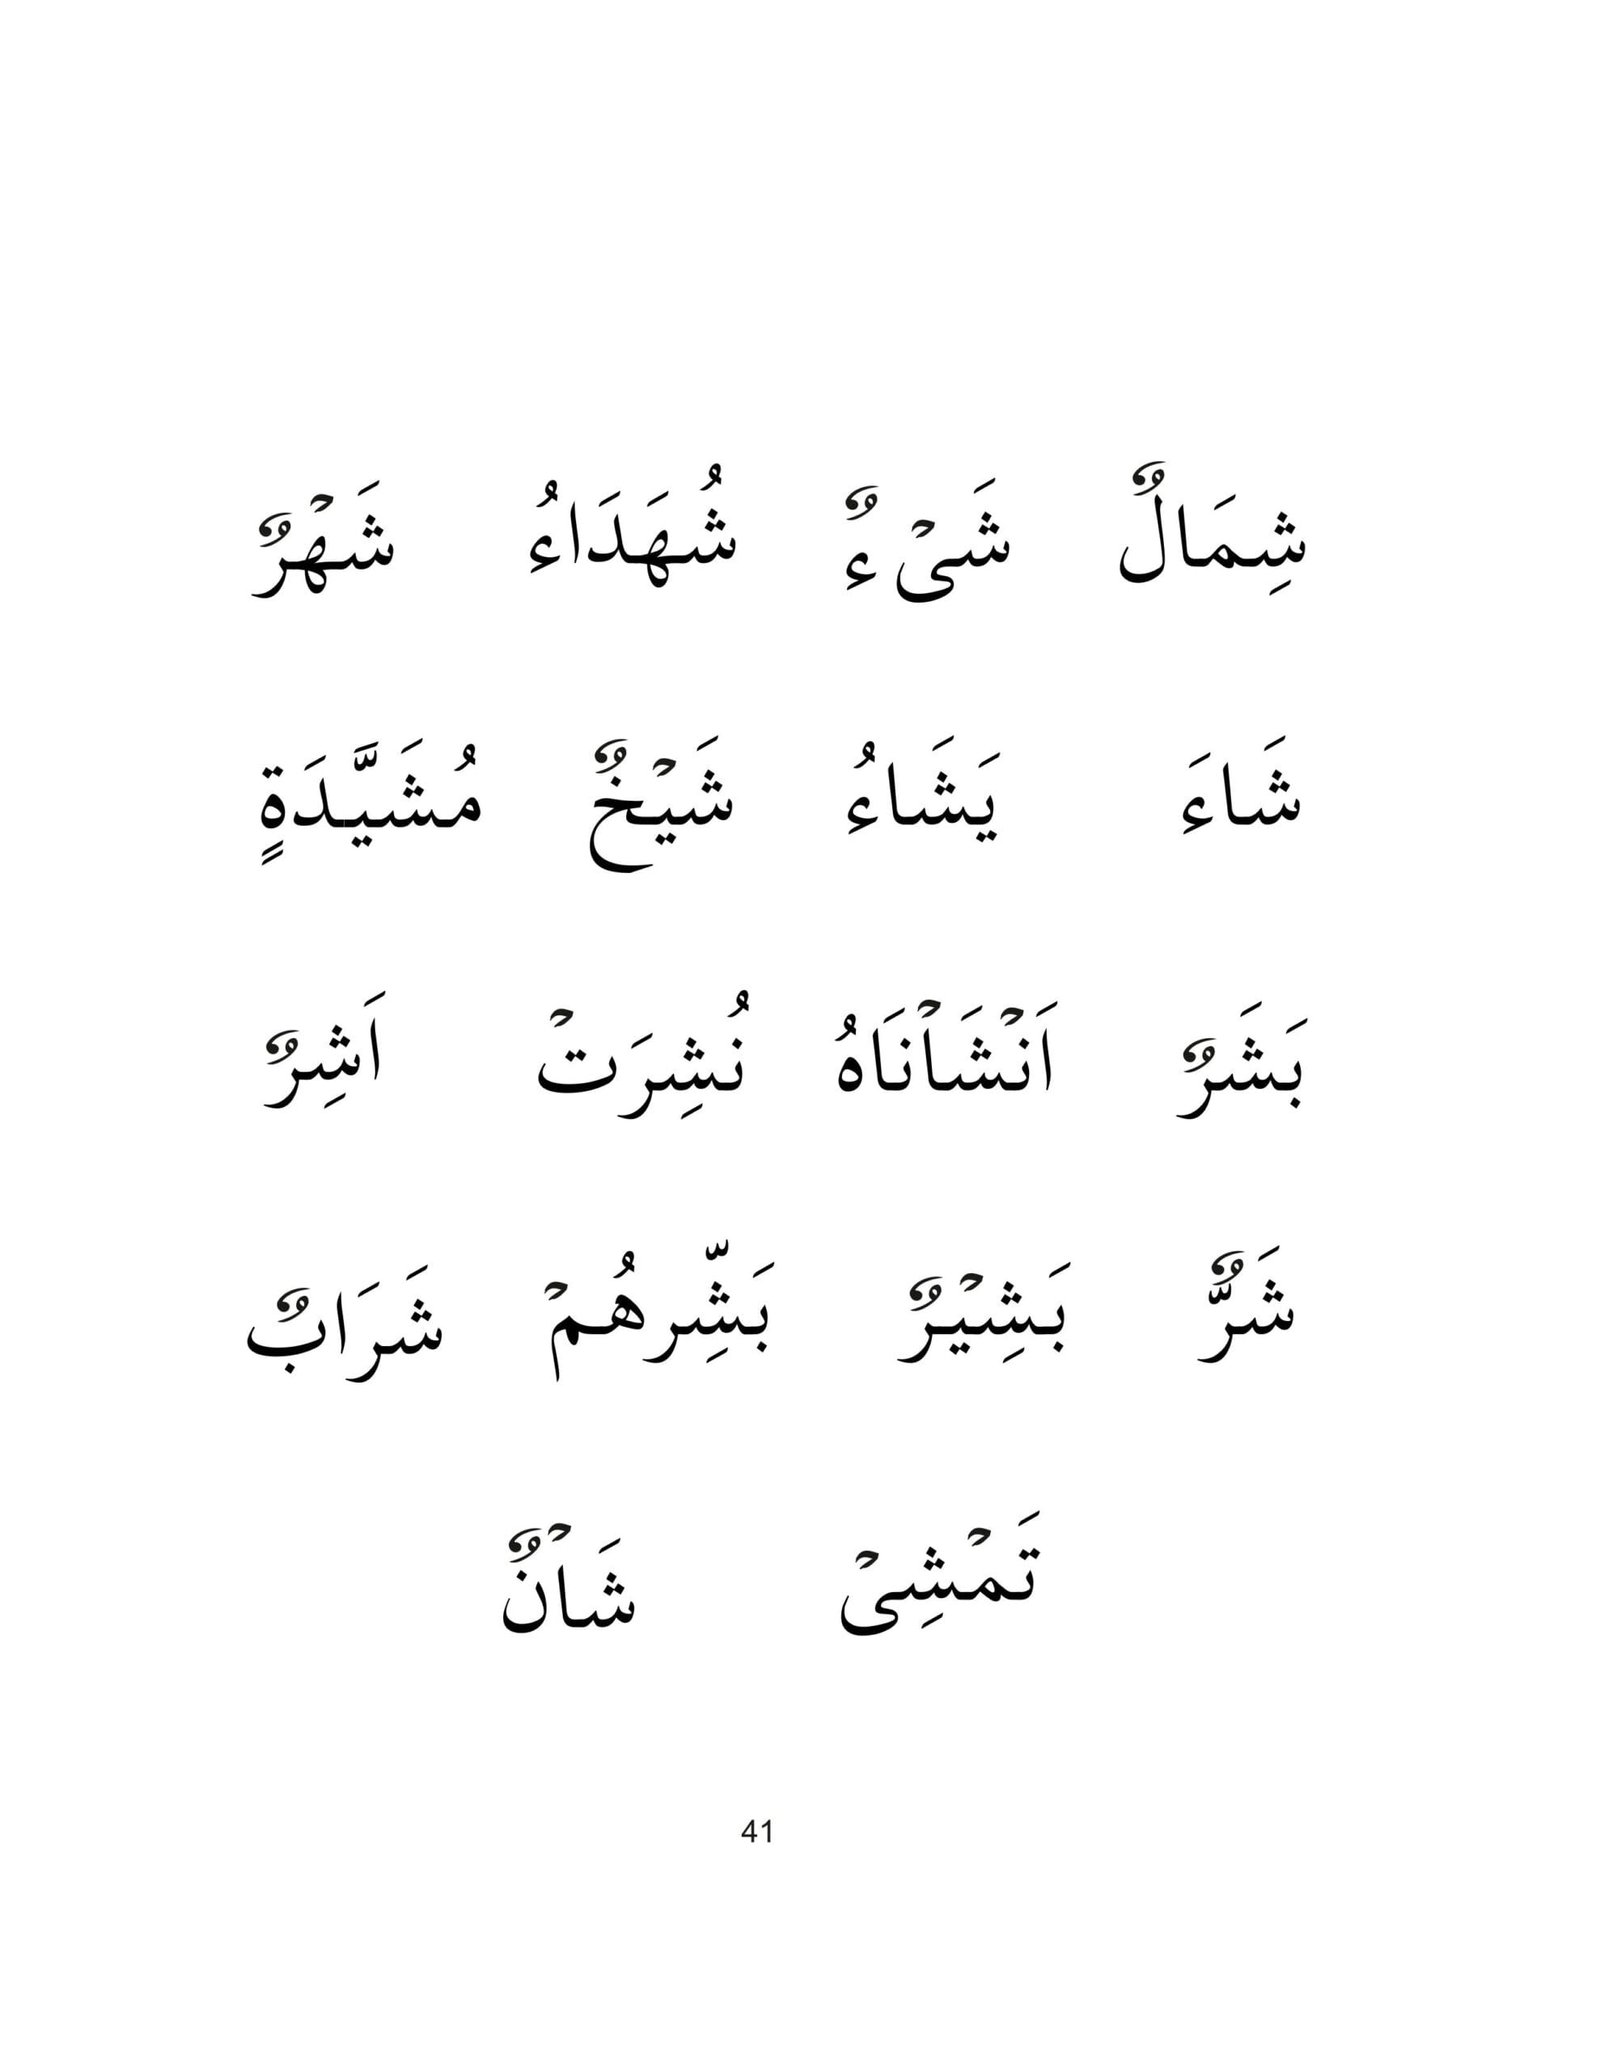 شِمَالٌ شَیْءٌ شُهَدَاءُ شَهْرٌ
شَاءَ يَشَاءُ شَيْخٌ مُشَيَّدَةٍ
بَشَرٌ اَنْشَاْنَاهُ نُشِرَتْ اَشِرٌ
شَرٌّ بَشِيْرٌ بَشِّرهُمْ شَرَابٌ
تَمْشِیْ شَاْنٌ
41